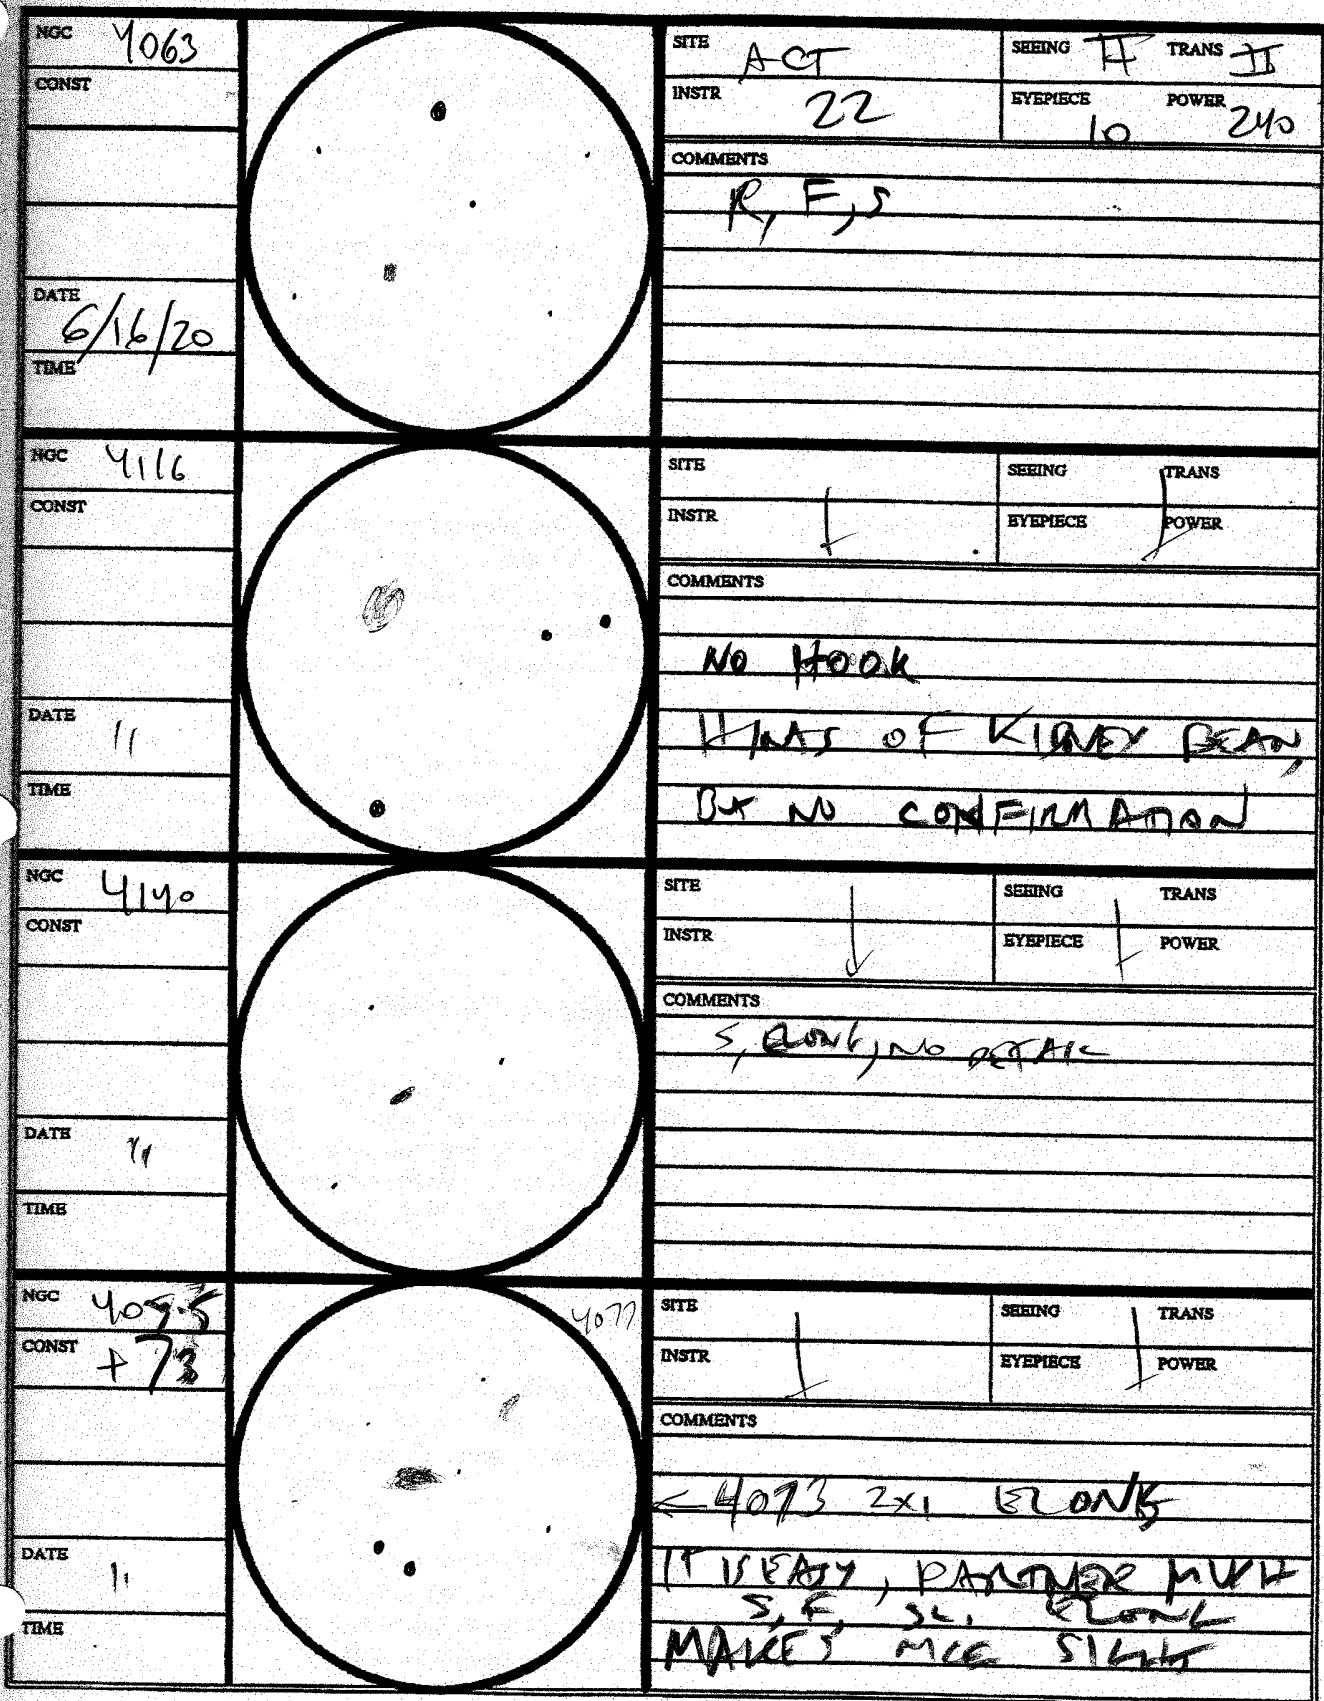 NGC 4063
CONST
DATE
6/16/20
TIME
SITE ACT
SEEING II TRANS II
INSTR 22
EYEPIECE 10 POWER 240
COMMENTS
R, F, S
NGC 4116
CONST
DATE 11
TIME
SITE
SEEING TRANS
INSTR
EYEPIECE POWER
COMMENTS
NO HOOK
HINTS OF KIDNEY BEAN,
BUT NO CONFIRMATION
NGC 4140
CONST
DATE 11
TIME
SITE
SEEING TRANS
INSTR
EYEPIECE POWER
COMMENTS
S, ELONG, NO DETAIL
NGC
CONST + 73
DATE 11
TIME
4077
SITE
SEEING TRANS
INSTR
EYEPIECE POWER
COMMENTS
← 4073 2x1 ELONG
IT IS EASY, PARTNER MUCH
S, F, SL. ELONG
MAKES NICE SIGHT